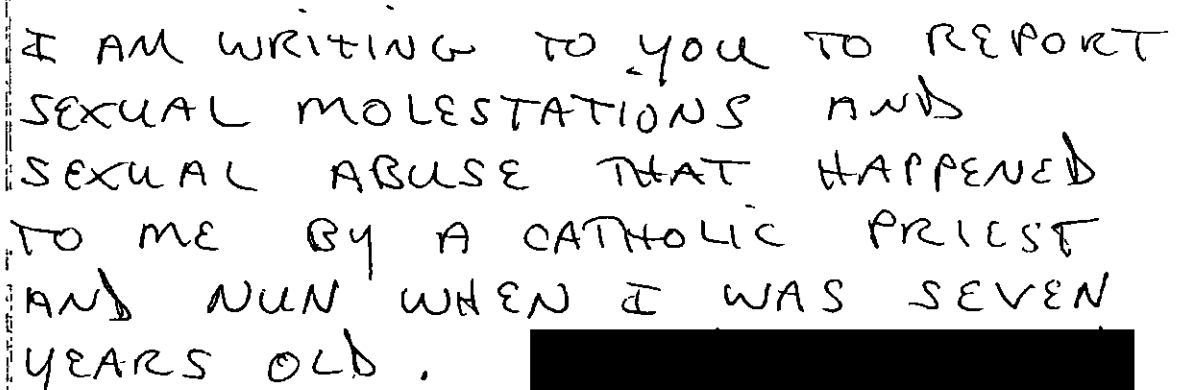 I AM WRITING TO YOU TO REPORT
SEXUAL MOLESTATIONS AND
SEXUAL ABUSE THAT HAPPENED
TO ME BY A CATHOLIC PRIEST
AND NUN WHEN I WAS SEVEN
YEARS OLD.